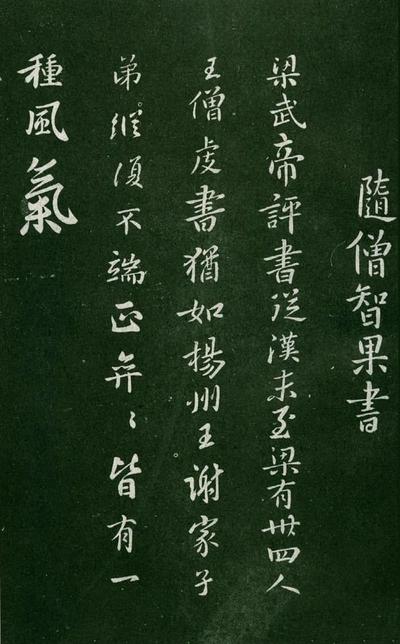 隨僧智果書
梁武帝評書從漢末至梁有卅四人
王僧虔書猶如揚州王謝家子
弟縱須不端正弈〻皆有一
種風氣